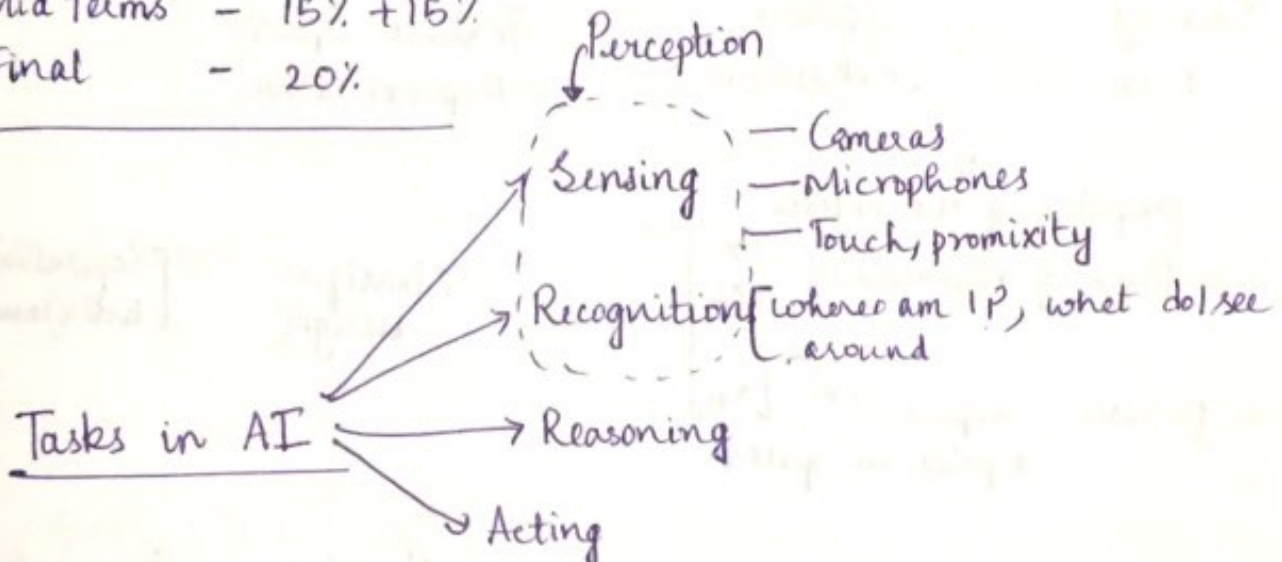 Terms - 15% + 15%
Final - 20%
Perception
Sensing
- Cameras
- Microphones
- Touch, promixity
Recognition [where am I?, what do I see
around
Tasks in AI
Reasoning
Acting